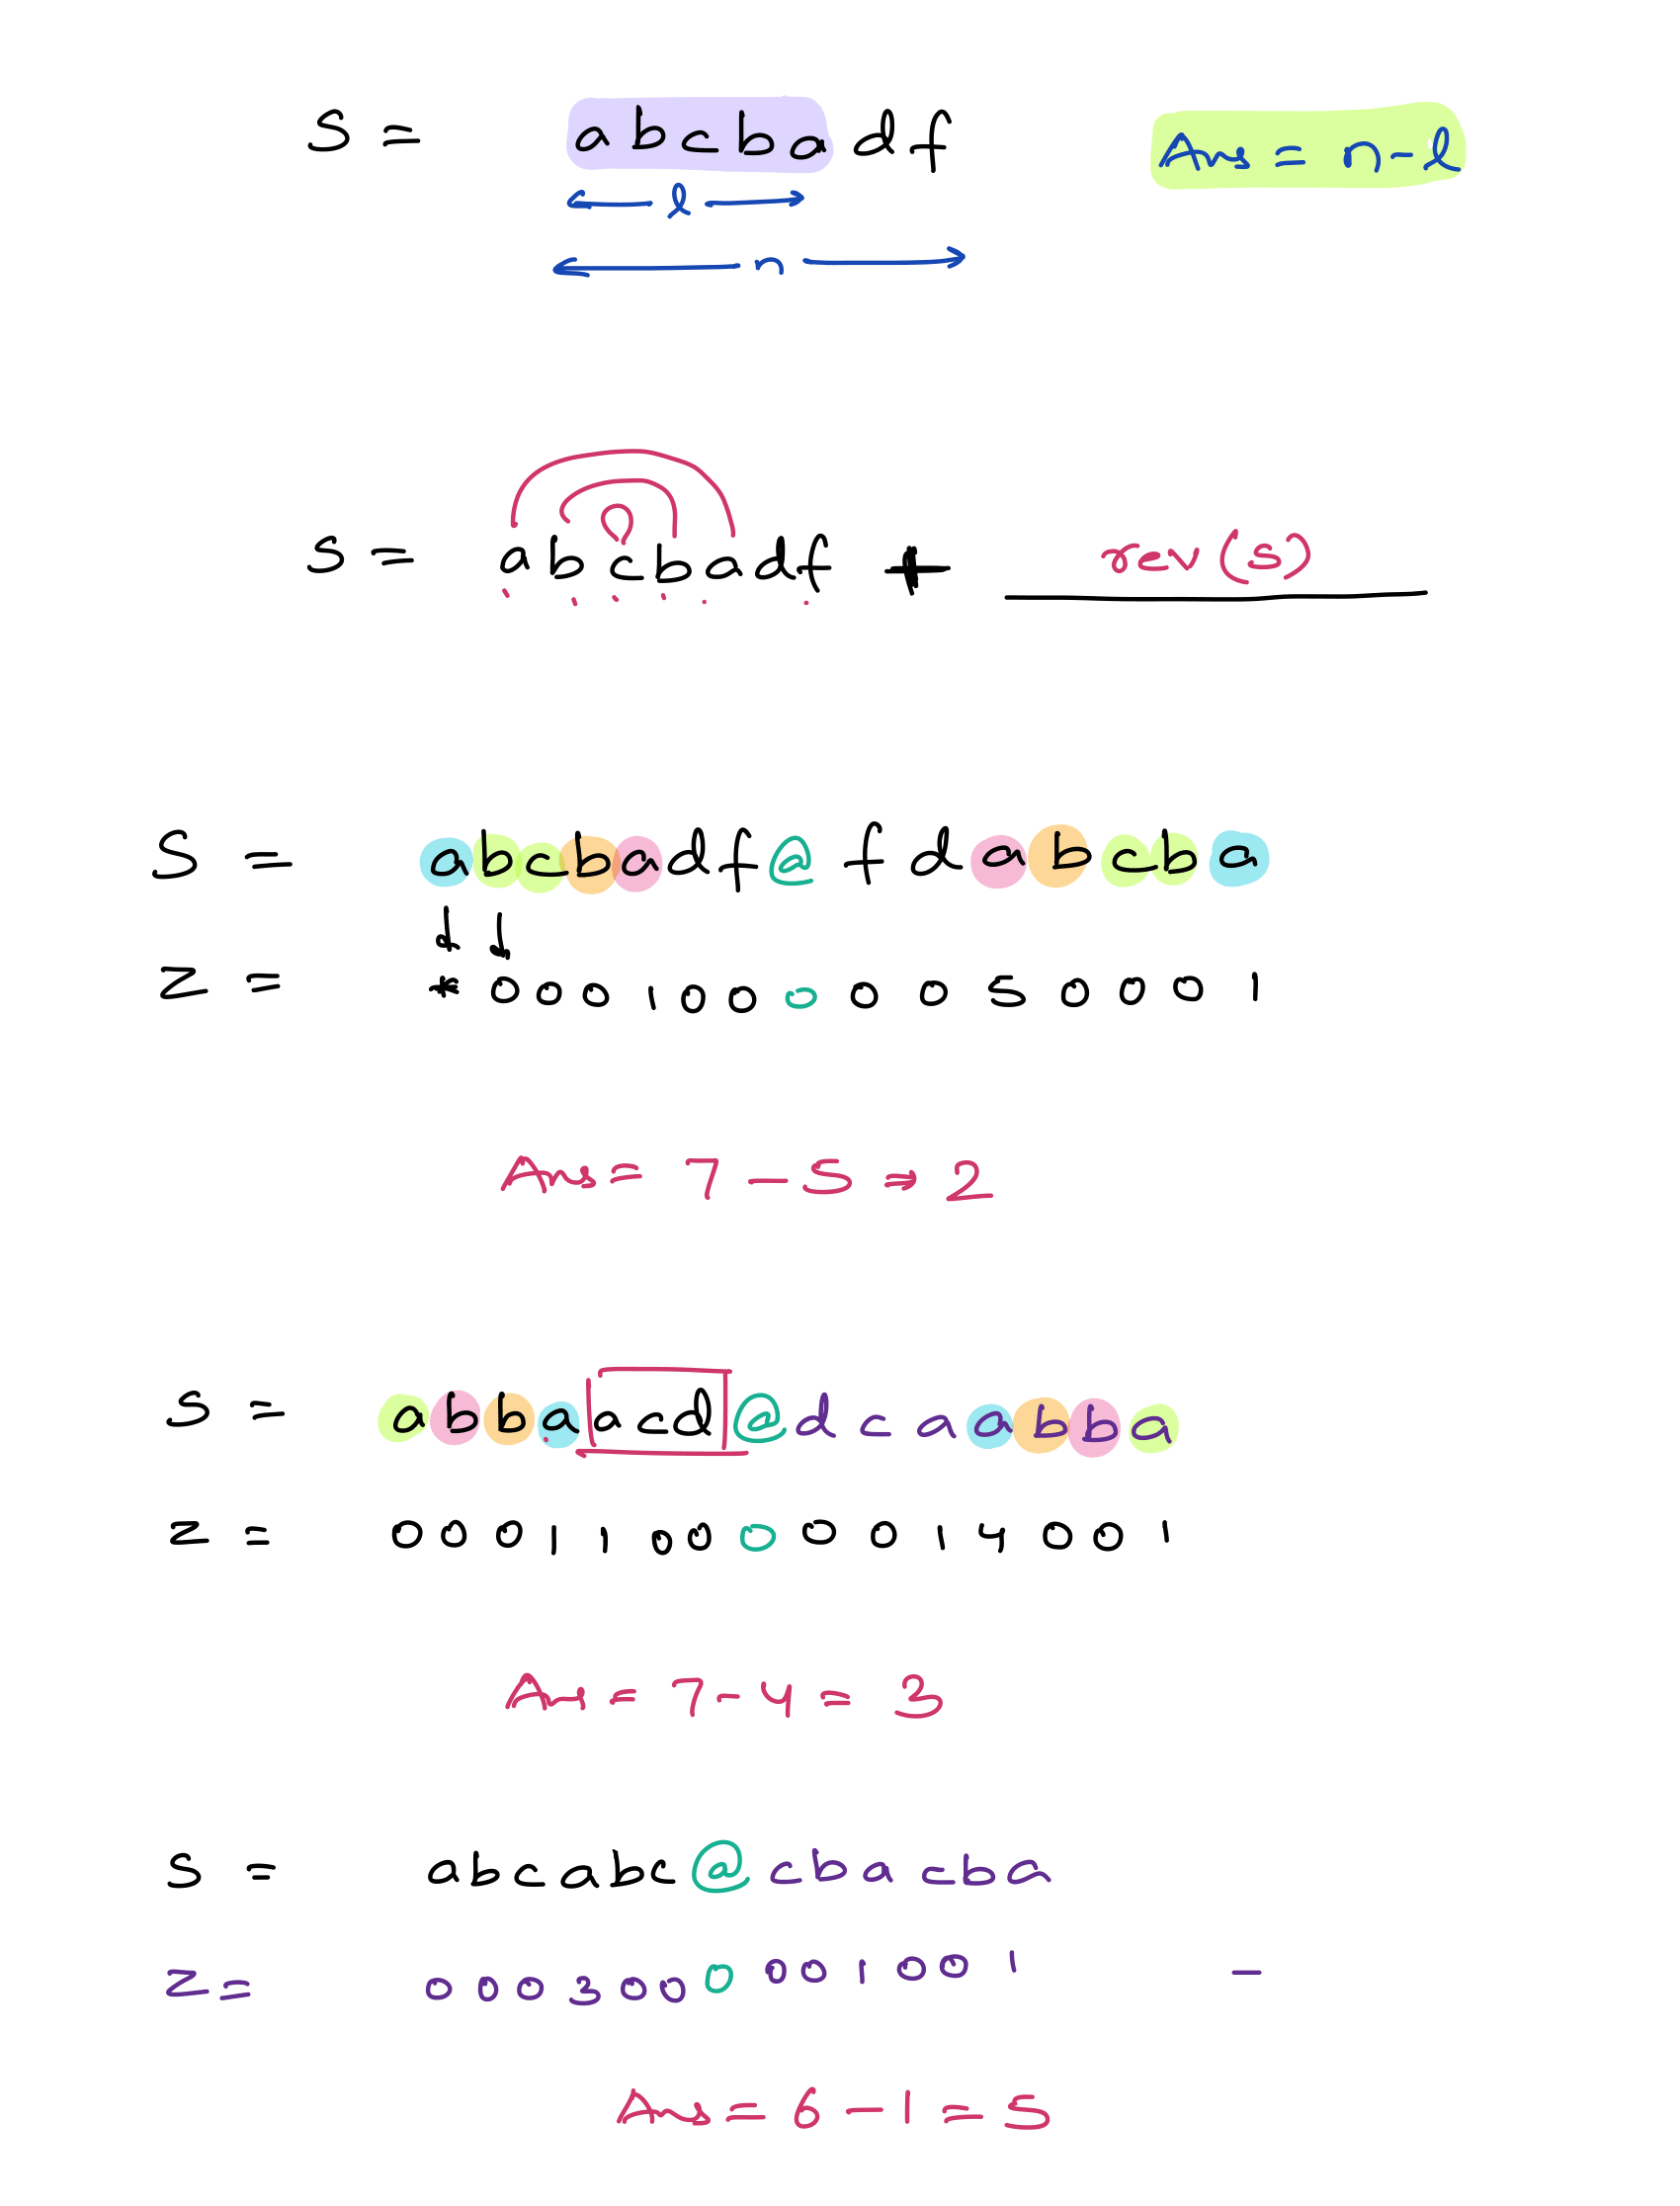 S = abcbadf Ans = n-l
l
n
S = abcbadf + rev(s)
S = abcbadf@fdabcba
Z = *00010000050001
Ans = 7-5 => 2
S = abbaacd@dcaabba
Z = 000110000014001
Ans = 7-4 = 3
S = abcabc@cbacba
Z = 0003000001001 -
Ans = 6-1 = 5